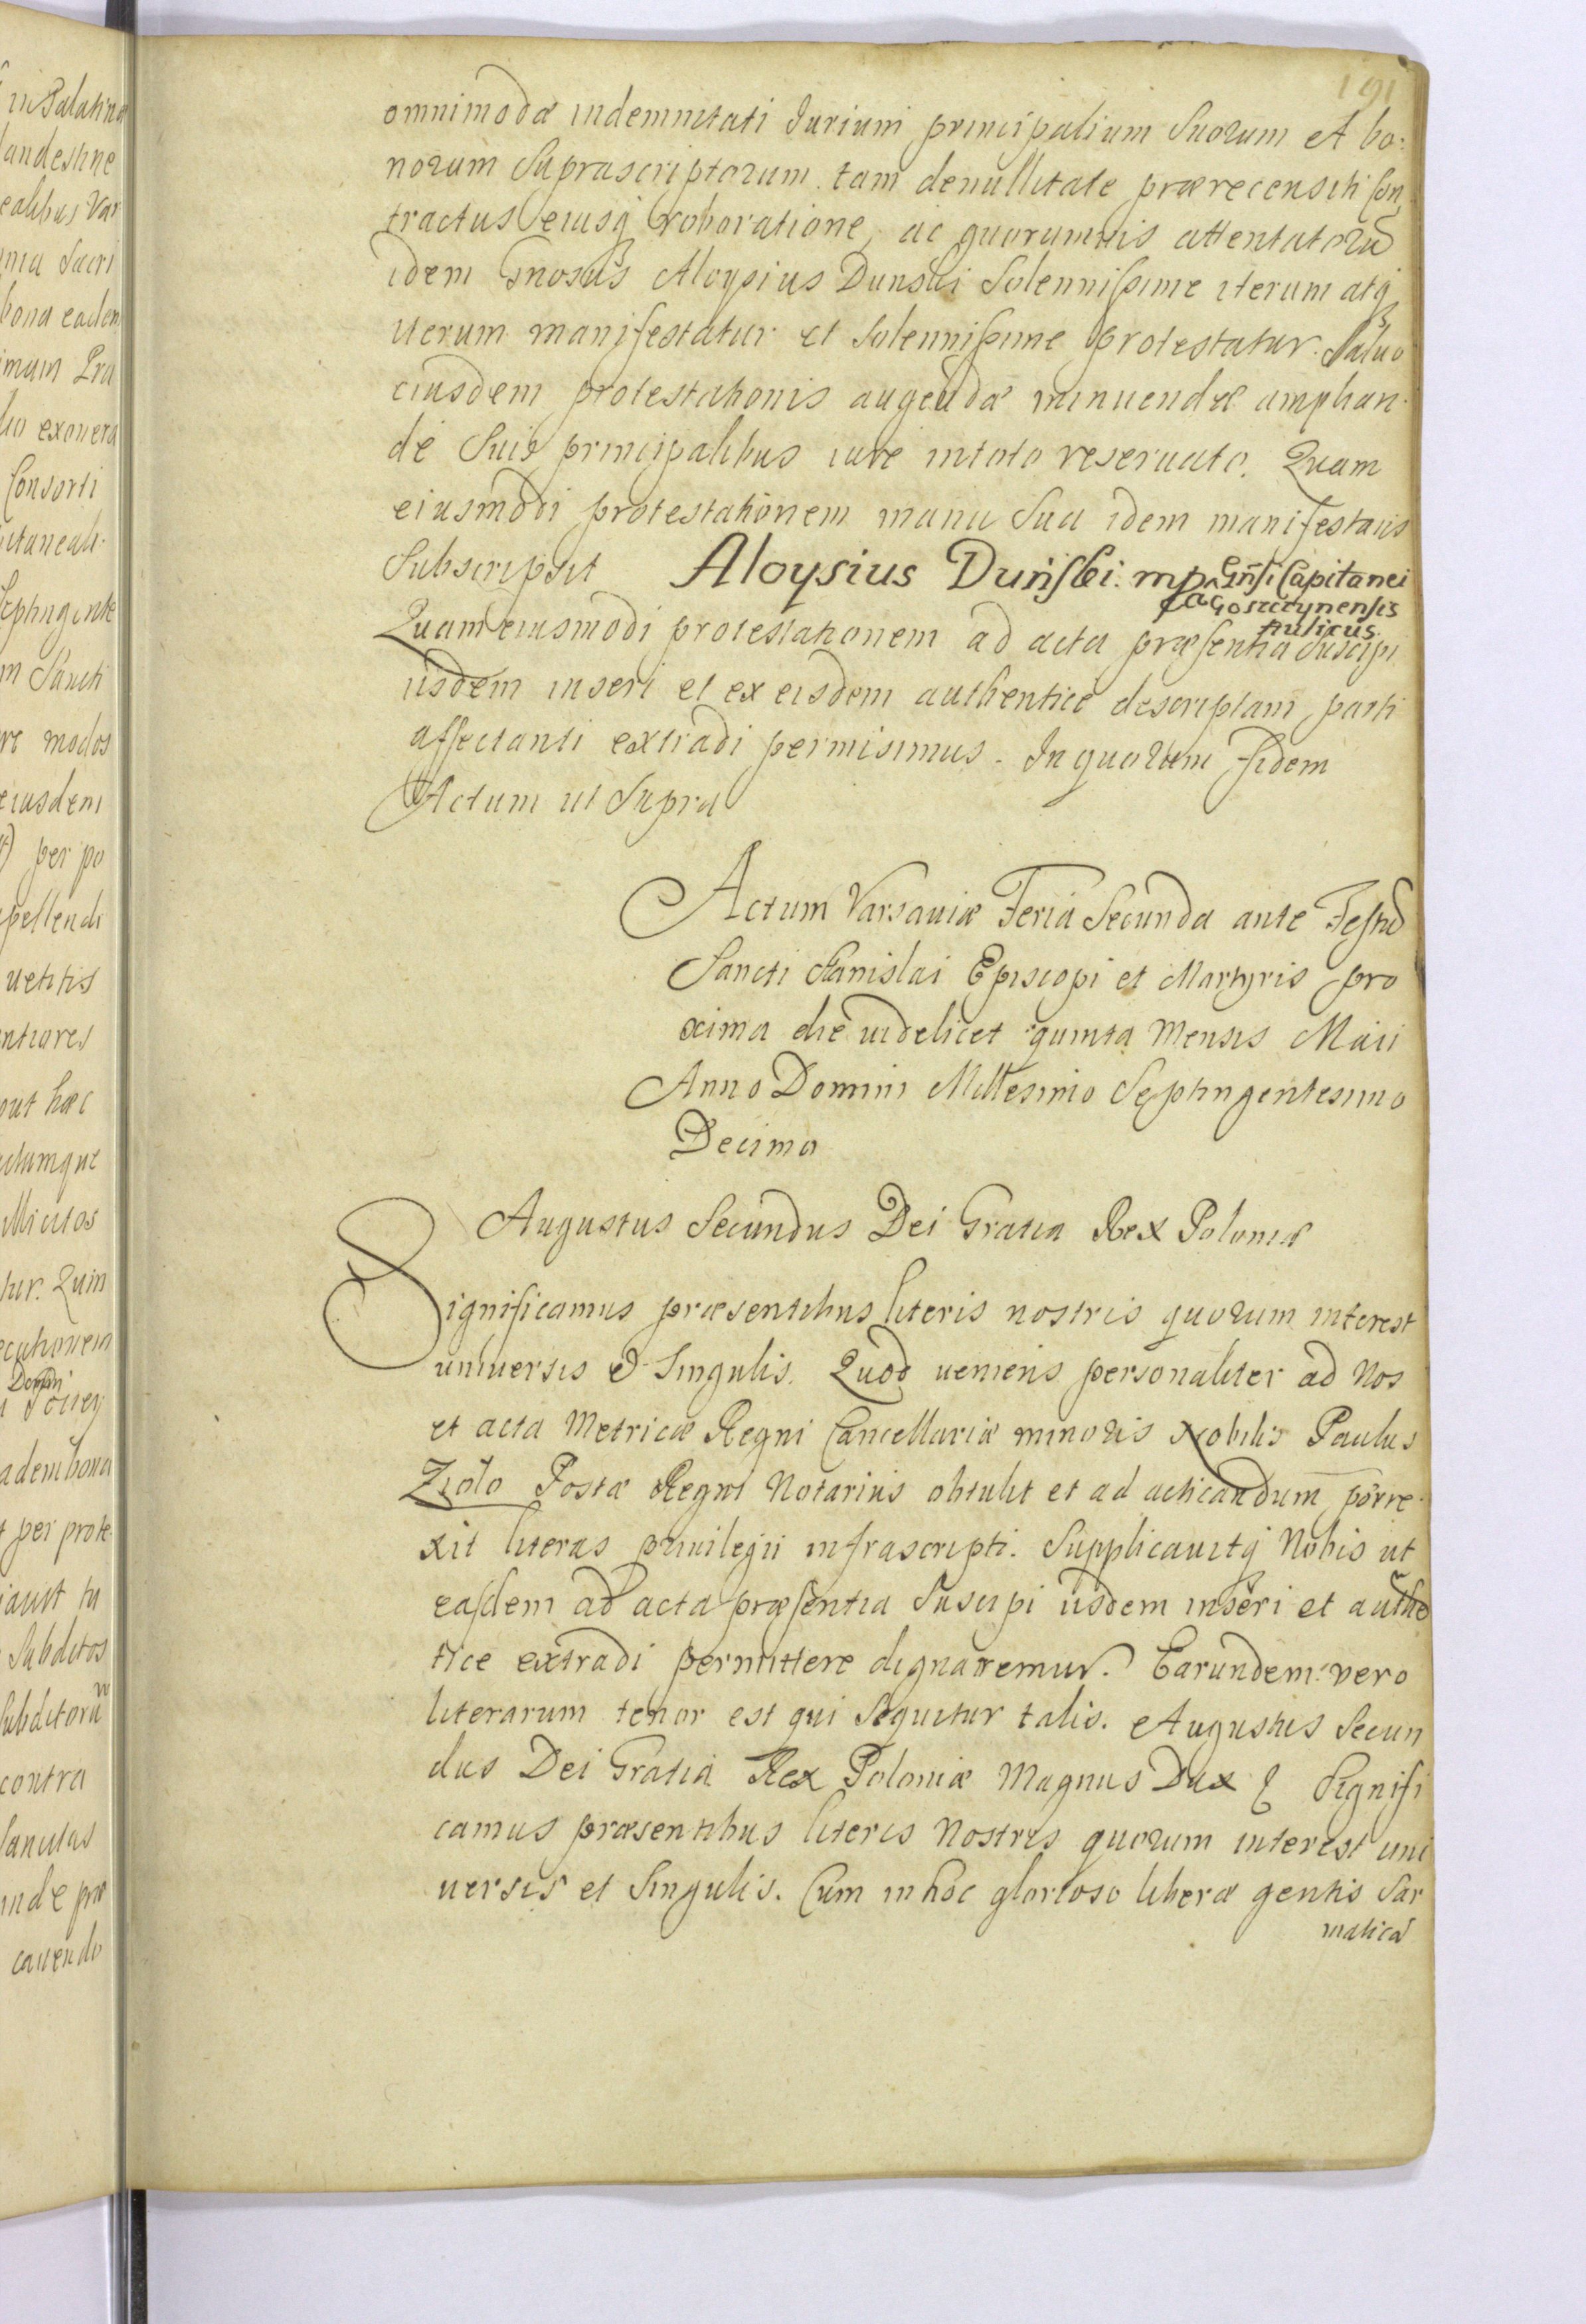 191
omnimodæ indemnitati Jurium principalium Suorum et bo:
norum Suprascriptorum tam de nullitate prærecensiti Con
tractus eiusq roboratione, ac quorumvis attentatorū
idem Gnosus Aloysius Dunski Solennissime iterum atq
iterum manifestatur et Solennissime protestatur. Saluo
eiusdem protestationis augendæ minuendæ amplian
dé Suis principalibus iure intoto reseruato. Quam
eiusmodi protestationem manu Sua idem manifestans
Subscripsit Aloysius Duński mp Capitanei
Gostitynensis
Aulicus
Quam eiusmodi protestationem ad acta præsentia Suscipi
iisdem inseri et ex eisdem authentice descriptam parti
affectanti extradi permisimus. In quorum fidem
Actum ut Supra
Actum Varsaviæ Feria Secunda ante Festū
Sancti Stanislai Episcopi et Martyris pro
xima die uidelicet quinta Mensis Maii
Anno Domini Millesimo Septingentesimo
Decimo
Augustus Secundus Dei Gratia Rex Poloniæ
Significamus præsentibus literis nostris quorum interest
uniuersis & Singulis. Quod ueniens personaliter ad Nos
et acta Metricæ Regni Cancellariæ minoris Nobilis Paulus
Zioło Postæ Regni Notarius obtulit et ad acticandum porre
xit literas priuilegii infrascripti. Supplicauitq Nobis ut
easdem ad acta præsentia Suscipi iisdem inseri et authē
tice extradi permittere dignaremur. Earundem vero
literarum tenor est qui Sequitur talis. Augustus Secun
dus Dei Gratia Rex Poloniæ Magnus Dux & Signifi
camus præsentibus literis Nostris quorum interest uni
uersis et Singulis. Cum in hoc glorioso liberæ gentis Sar
matica